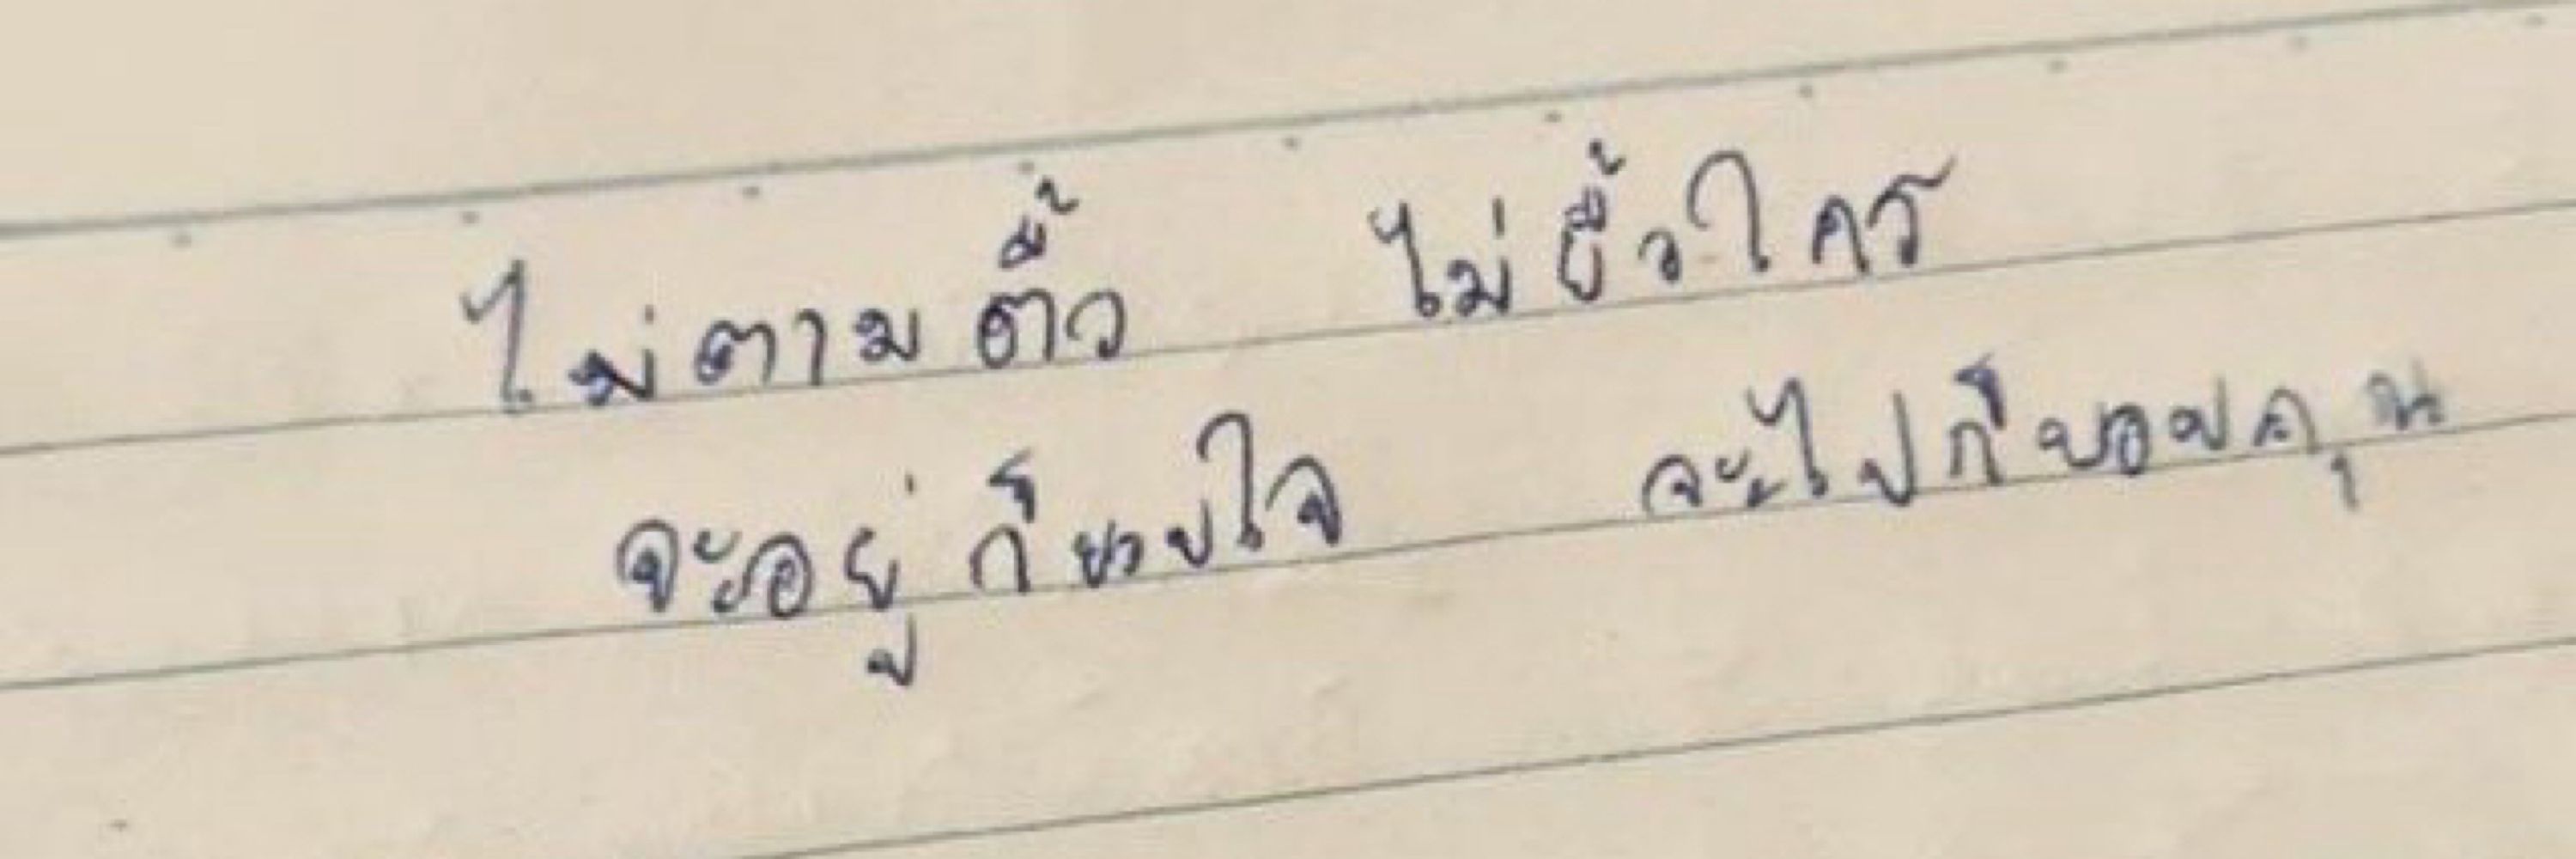 ไม่ตามตื้ว ไม่ยื้อใคร
จะอยู่ก็ขอบใจ จะไปก็ขอบคุณ